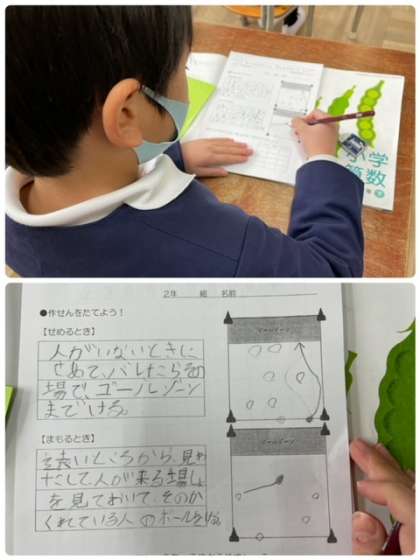 小学
算数
下
2年　　組　名前
●作せんをたてよう！
【せめるとき】
人がいないときに
せめて、バレたらその
場で、ゴールゾーン
までける。
ゴールゾーン
【まもるとき】
遠いところから、見わ
たして人が来る場しょ
を見ておいて、そのか
くれている人のボールをける。
ゴールゾーン